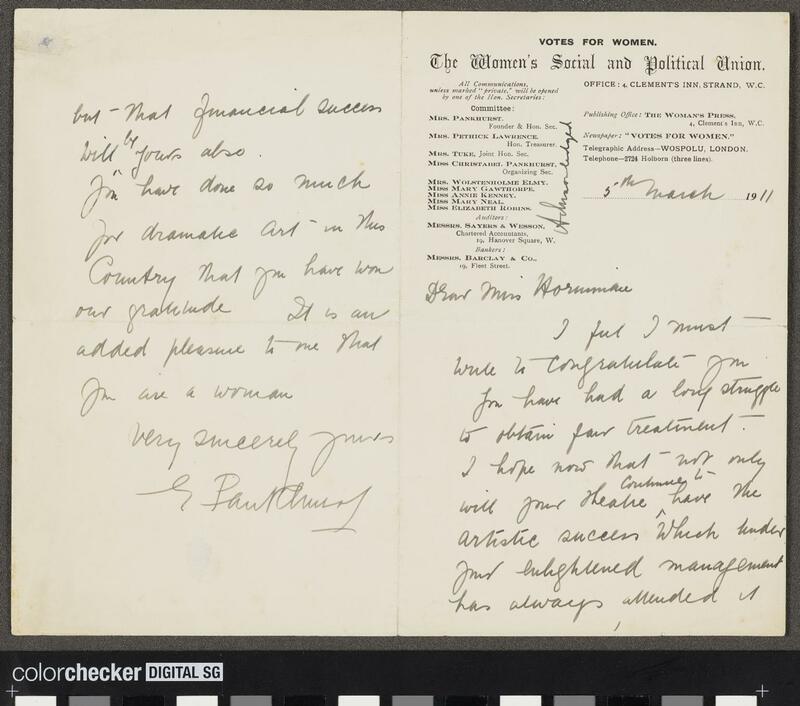 VOTES FOR WOMEN.
The Women's Social and Political Union.
All Communications,
unless marked "private," will be opened
by one of the Hon. Secretaries:
Committee:
MRS. PANKHURST,
Founder & Hon. Sec.
MRS. PETHICK LAWRENCE,
Hon. Treasurer.
MRS. TUKE, Joint Hon. Sec.
MISS CHRISTABEL PANKHURST,
Organizing Sec.
MRS. WOLSTENHOLME ELMY.
MISS MARY GAWTHORPE.
MISS ANNIE KENNEY.
MISS MARY NEAL.
MISS ELIZABETH ROBINS.
Auditors:
MESSRS. SAYERS & WESSON,
Chartered Accountants,
19, Hanover Square, W.
Bankers:
MESSRS. BARCLAY & CO.,
19, Fleet Street.
OFFICE: 4, CLEMENT'S INN, STRAND, W.C.
Publishing Office: THE WOMAN'S PRESS,
4, Clement's Inn, W.C.
Newspaper: "VOTES FOR WOMEN."
Telegraphic Address—WOSPOLU, LONDON.
Telephone—2724 Holborn (three lines).
5th March 1911
Acknowledged
Dear Miss Horniman
I feel I must
write to congratulate you
You have had a long struggle
to obtain fair treatment.
I hope now that not only
will your theatre continue to have the
artistic success which under
your enlightened management
has always attended it
but that financial success
will be yours also.
You have done so much
for dramatic art in this
Country that you have won
our gratitude It is an
added pleasure to me that
you are a woman
Very sincerely yours
E Pankhurst
colorchecker DIGITAL SG